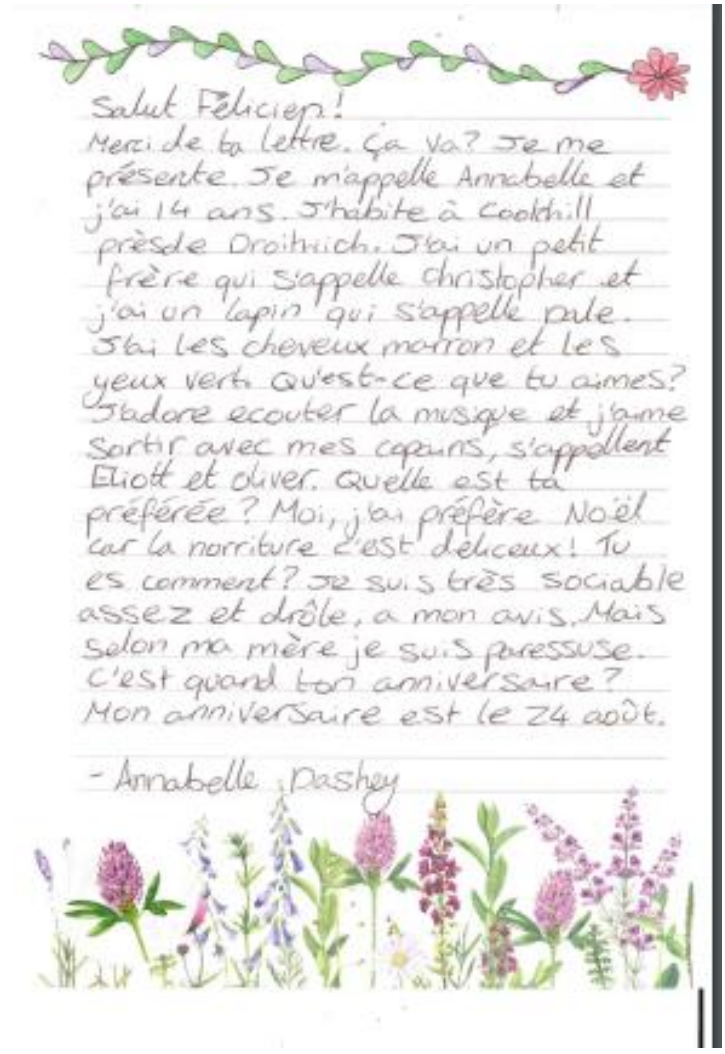 Salut Félicien!
Merci de ta lettre. Ça va? Je me
présente. Je m'appelle Annabelle et
j'ai 14 ans. J'habite à Cookhill
prèsde Droitwich. J'ai un petit
frère qui s'appelle Christopher et
j'ai un lapin qui s'appelle pale.
J'ai les cheveux marron et les
yeux verts. Qu'est-ce que tu aimes?
J'adore ecouter la musique et j'aime
sortir avec mes copains, s'appellent
Eliott et oliver. Quelle est ta
préférée? Moi, j'ai préfère Noël
car la norriture c'est déliceux! Tu
es comment? Je suis très sociable
assez et drôle, a mon avis. Mais
selon ma mère je suis paressuse.
C'est quand ton anniversaire?
Mon anniversaire est le 24 août.
- Annabelle Dashey